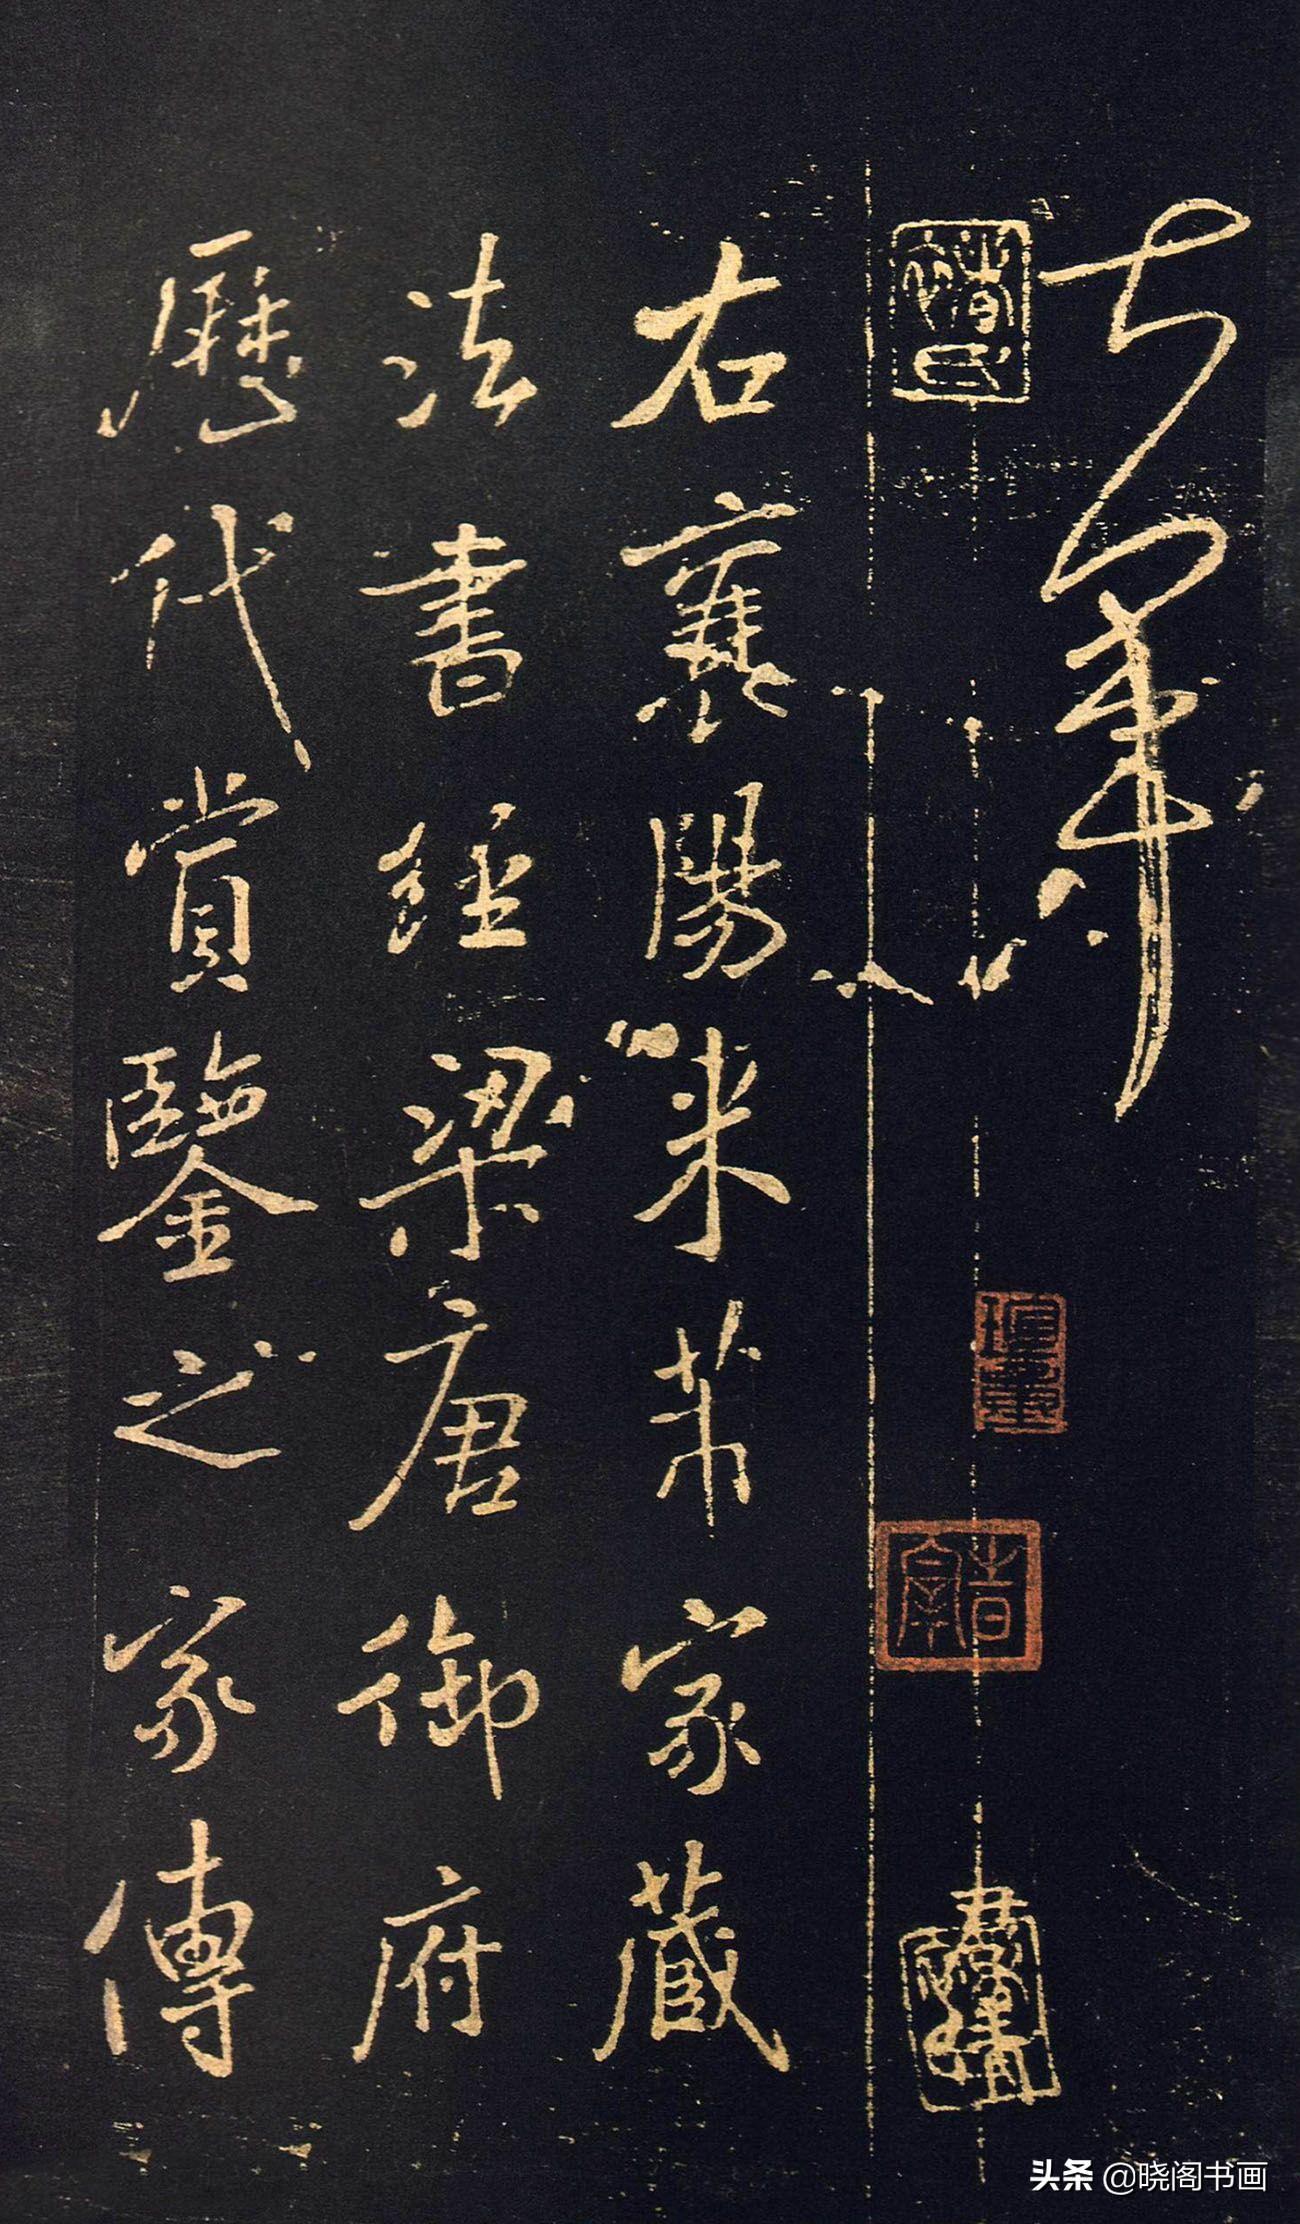 右襄陽米芾家藏
法書經梁唐御府
歷代賞鑒之家傳
头条 @晓阁书画